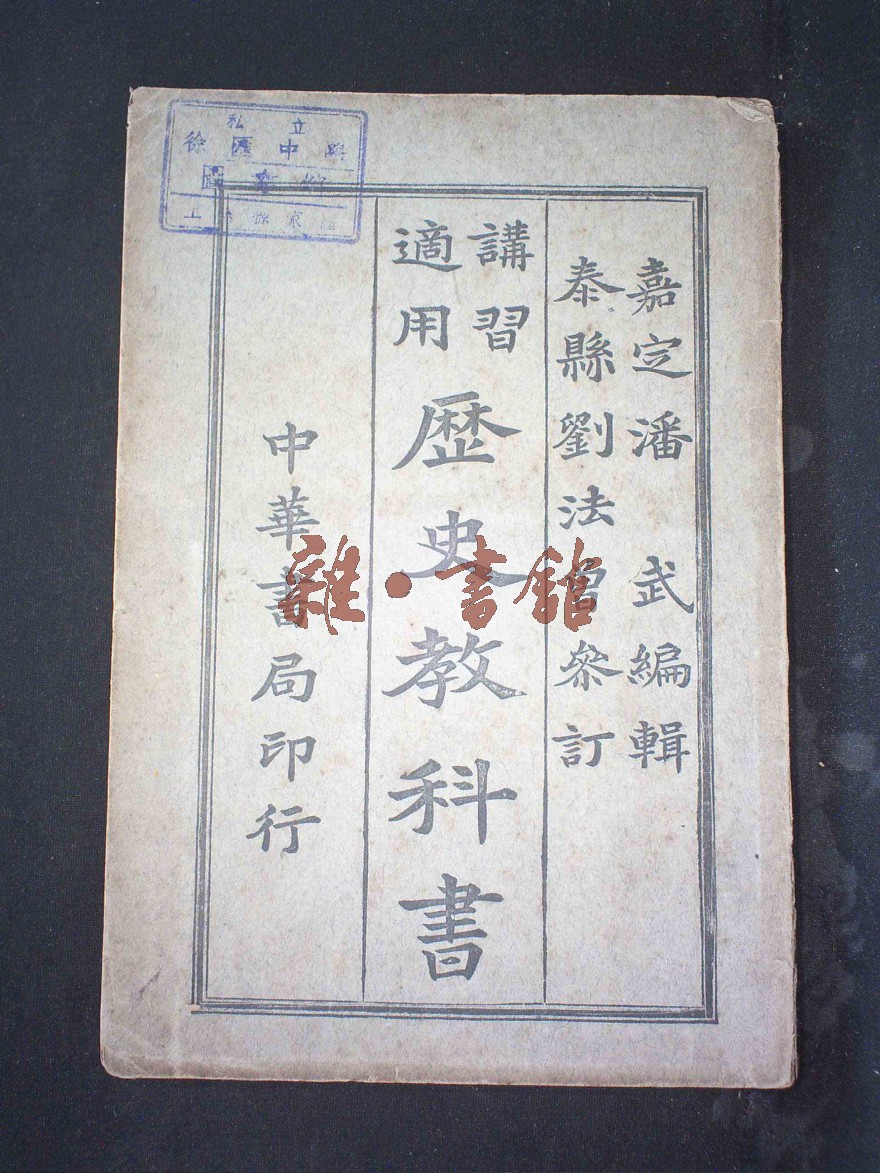 嘉定潘武編輯
泰縣劉法曾參訂
講習
適用
歷史教科書
中華書局印行
私立
徐匯中學
圖書館
雜·書館